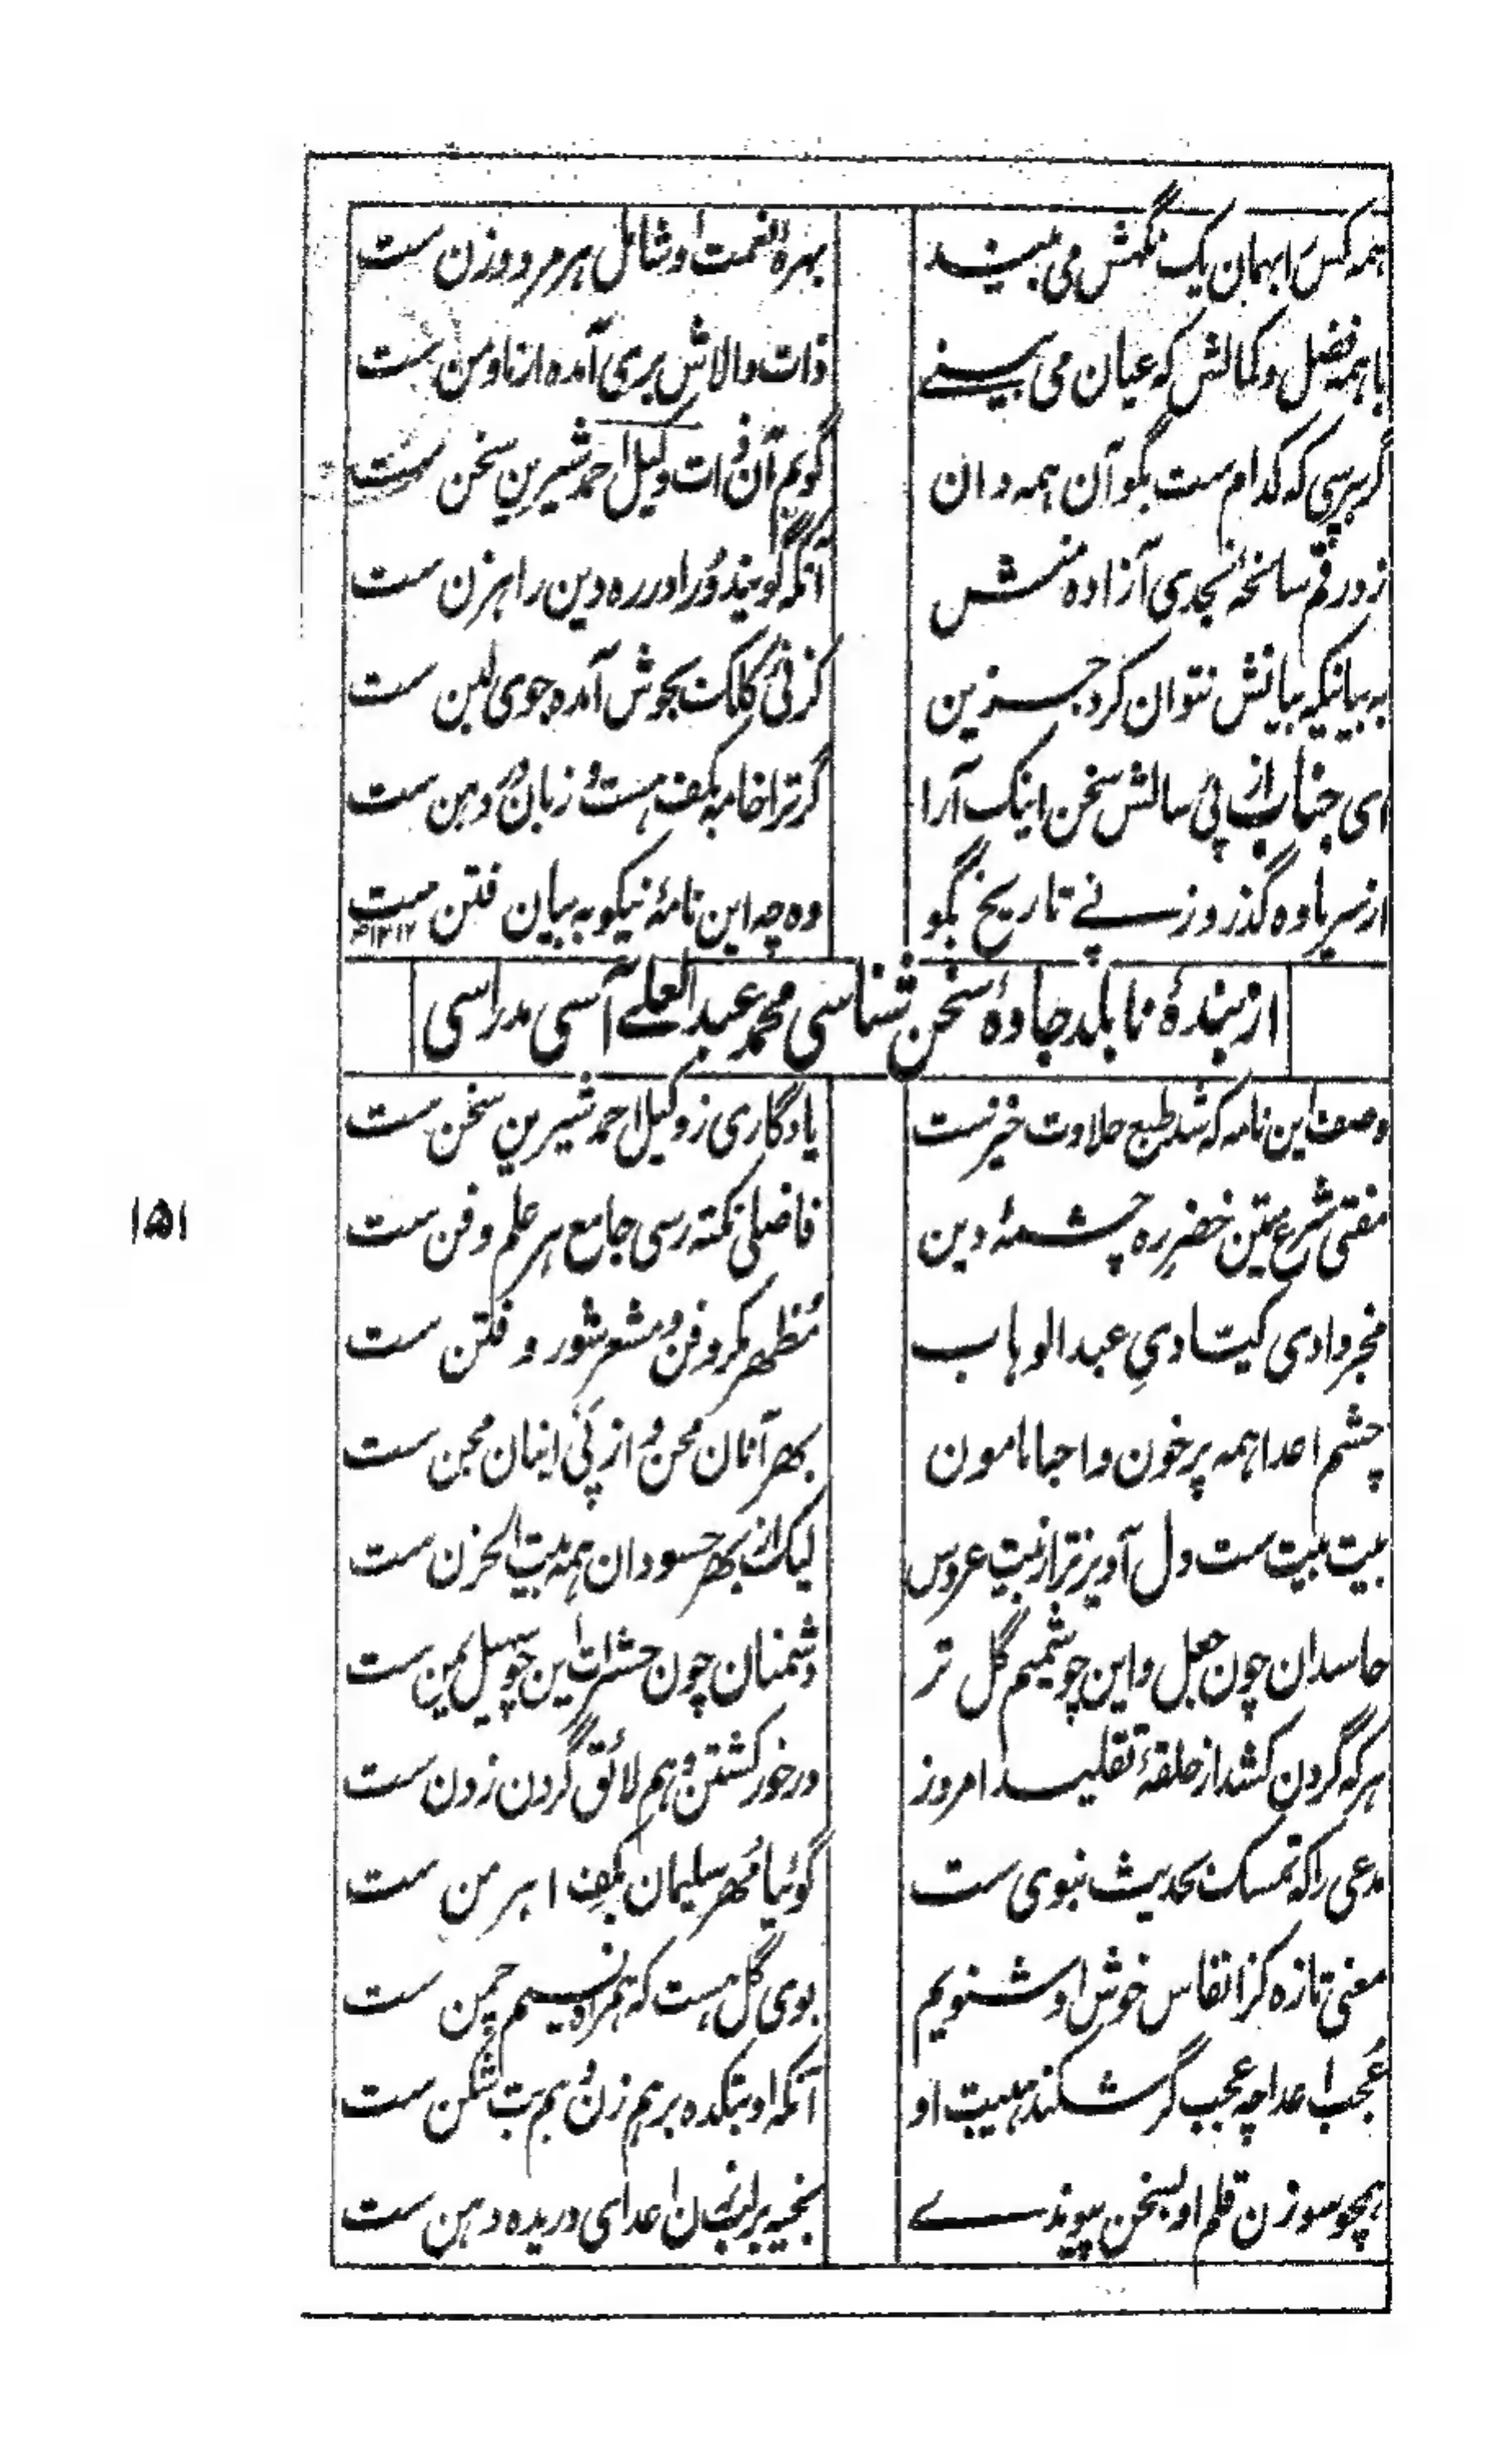 همه کس را بهمان یک نگهش می بیند بهرهٔ نعمت او شامل هر مرد و زن ست
با همه فضل و کمالش که عیان می بینے ذات والاش بری آمده از ما و من ست
گر بپرسی که کدام ست بگو آن همه دان گویم آن ذات وکیل احمد شیرین سخن ست
زد رقم سانحهٔ نجدی آزاده منش آنکه گویند ورا در ره دین راهزن ست
به بیانیکه بیانش نتوان کرد جزین کز نئ کلکت بجوش آمده جوی لبن ست
ای جناب از پئ سالش سخن اینک آرا گر ترا خامه بکف هست و زبان و دهن ست
از سر یاوه گذر وز نے تاریخ بگو وه چه این نامهٔ نیکو به بیان فتن ست
از بندهٔ نابلد جادهٔ سخن شناسی محمد عبد العلے آسی مدراسی
وصف این نامه که شد طبع حلاوت خیزست یادگاری ز وکیل احمد شیرین سخن ست
مفتی شرع متین خضر ره چشمهٔ دین فاضلی نکته رسی جامع هر علم و فن ست
مخبر وادی کیّادیِ عبد الوهاب مُظهر مکر و فن و مشعر شور و فتن ست
چشم اعدا همه پر خون و احبا مامون بهر آنان محن و از پئ اینان مجن ست
بیت بیت ست دل آویز تر از بیت عروس لیک از بهر حسودان همه بیت الحزن ست
حاسدان چون جعل و این چو شمیم گل تر دشمنان چون حشرات این چو سهیل یمن ست
هر که گردن کشد از حلقهٔ تقلید امروز در خور کشتن و هم لائق گردن زدن ست
مدعی را که تمسک بحدیث نبوی ست گوئیا مُهر سلیمان بکف اهرمن ست
معنی تازه کز انفاس خوش او شنویم بوی گل هست که همراه نسیم چمن ست
عُجب اعدا چه عجب گر شکند هیبت او آنکه او بتکده برهم زن و هم بت شکن ست
همچو سوزن قلم او بسخن پیوندے بخیه بر لب اعدای دریده دهن ست
۱۵۱